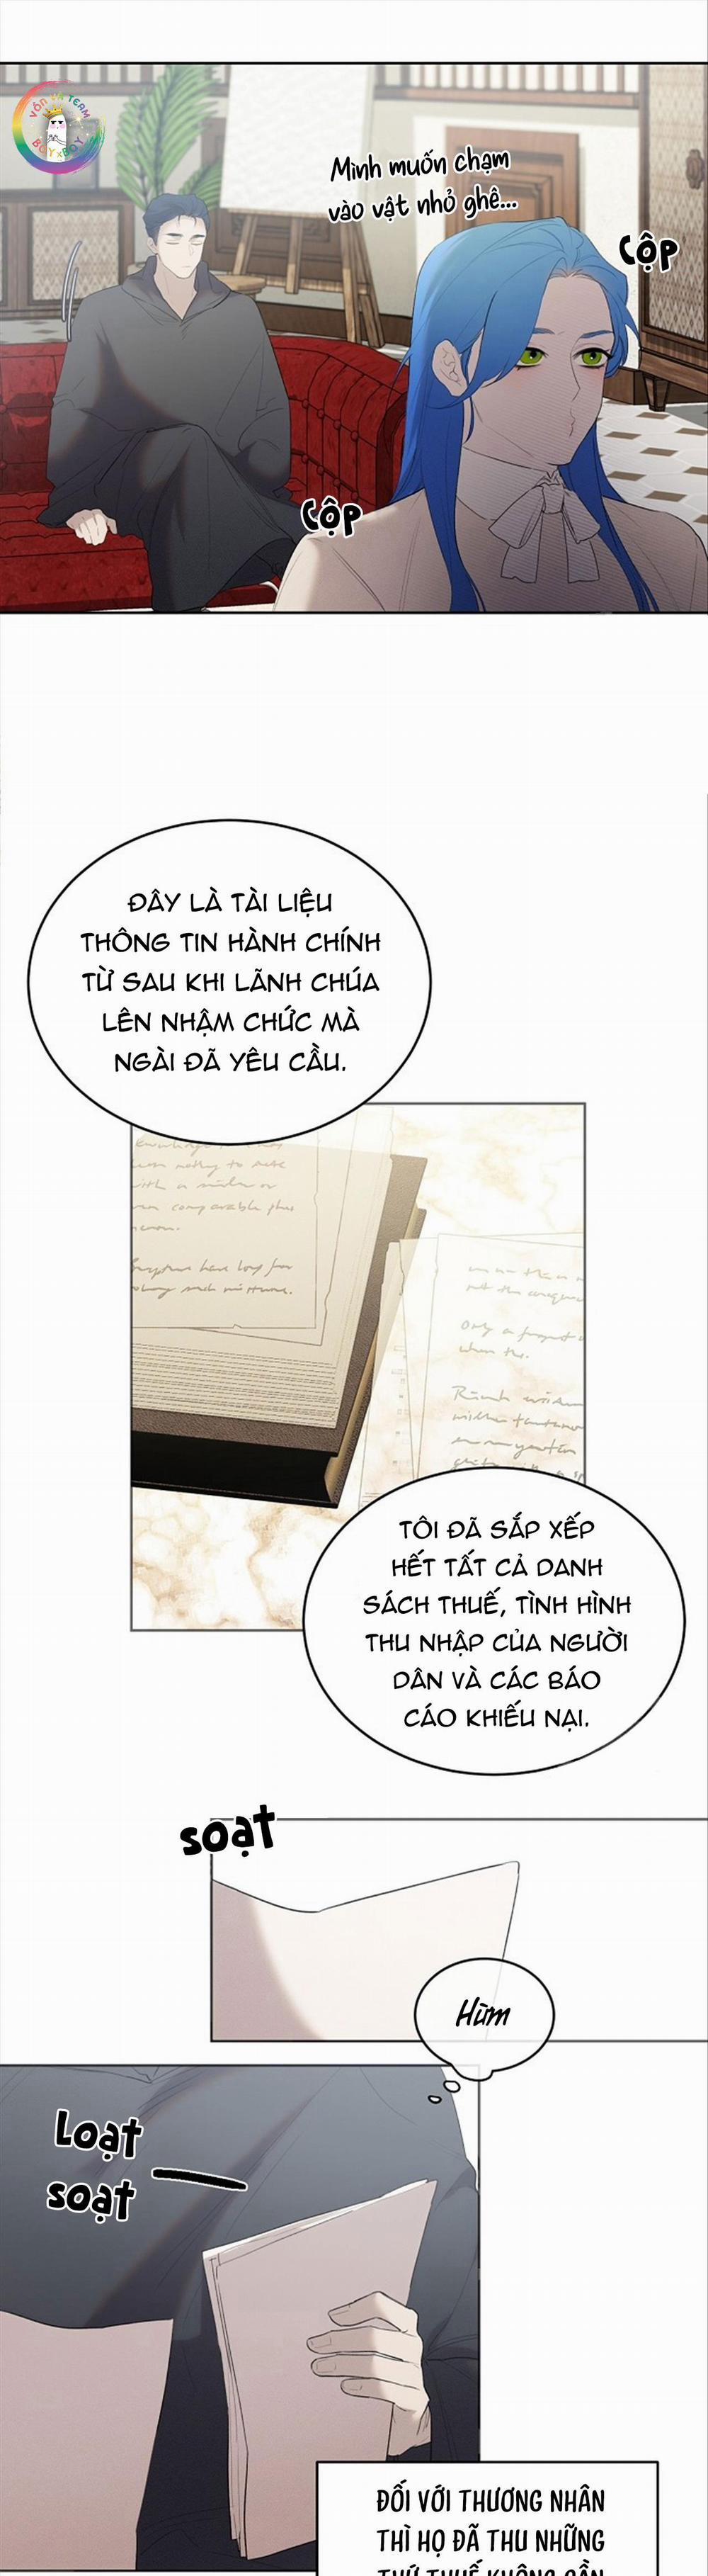 VỐN LÀ TEAM
BOYxBOY
Mình muốn chạm
vào vật nhỏ ghê...
CỘP
CỘP
ĐÂY LÀ TÀI LIỆU
THÔNG TIN HÀNH CHÍNH
TỪ SAU KHI LÃNH CHÚA
LÊN NHẬM CHỨC MÀ
NGÀI ĐÃ YÊU CẦU.
with a
Only a
when the.
TÔI ĐÃ SẮP XẾP
HẾT TẤT CẢ DANH
SÁCH THUẾ, TÌNH HÌNH
THU NHẬP CỦA NGƯỜI
DÂN VÀ CÁC BÁO
CÁO KHIẾU NẠI.
soạt
Hừm
Loạt
soạt
ĐỐI VỚI THƯƠNG NHÂN
THÌ HỌ ĐÃ THU NHỮNG
THỨ THUẾ KHÔNG CẦN